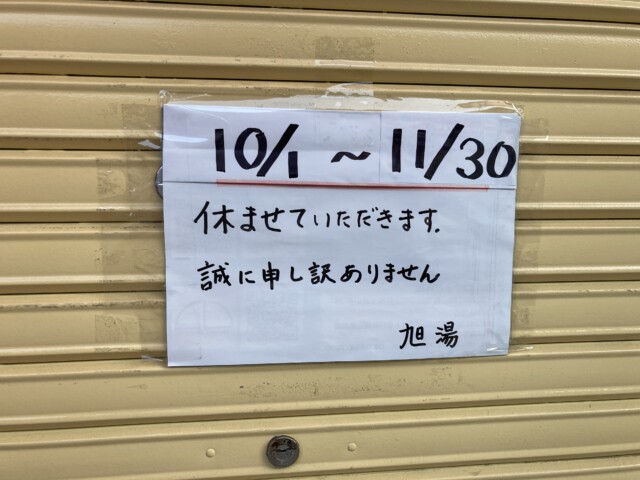 10/1 ~ 11/30
休ませていただきます.
誠に申し訳ありません
旭湯